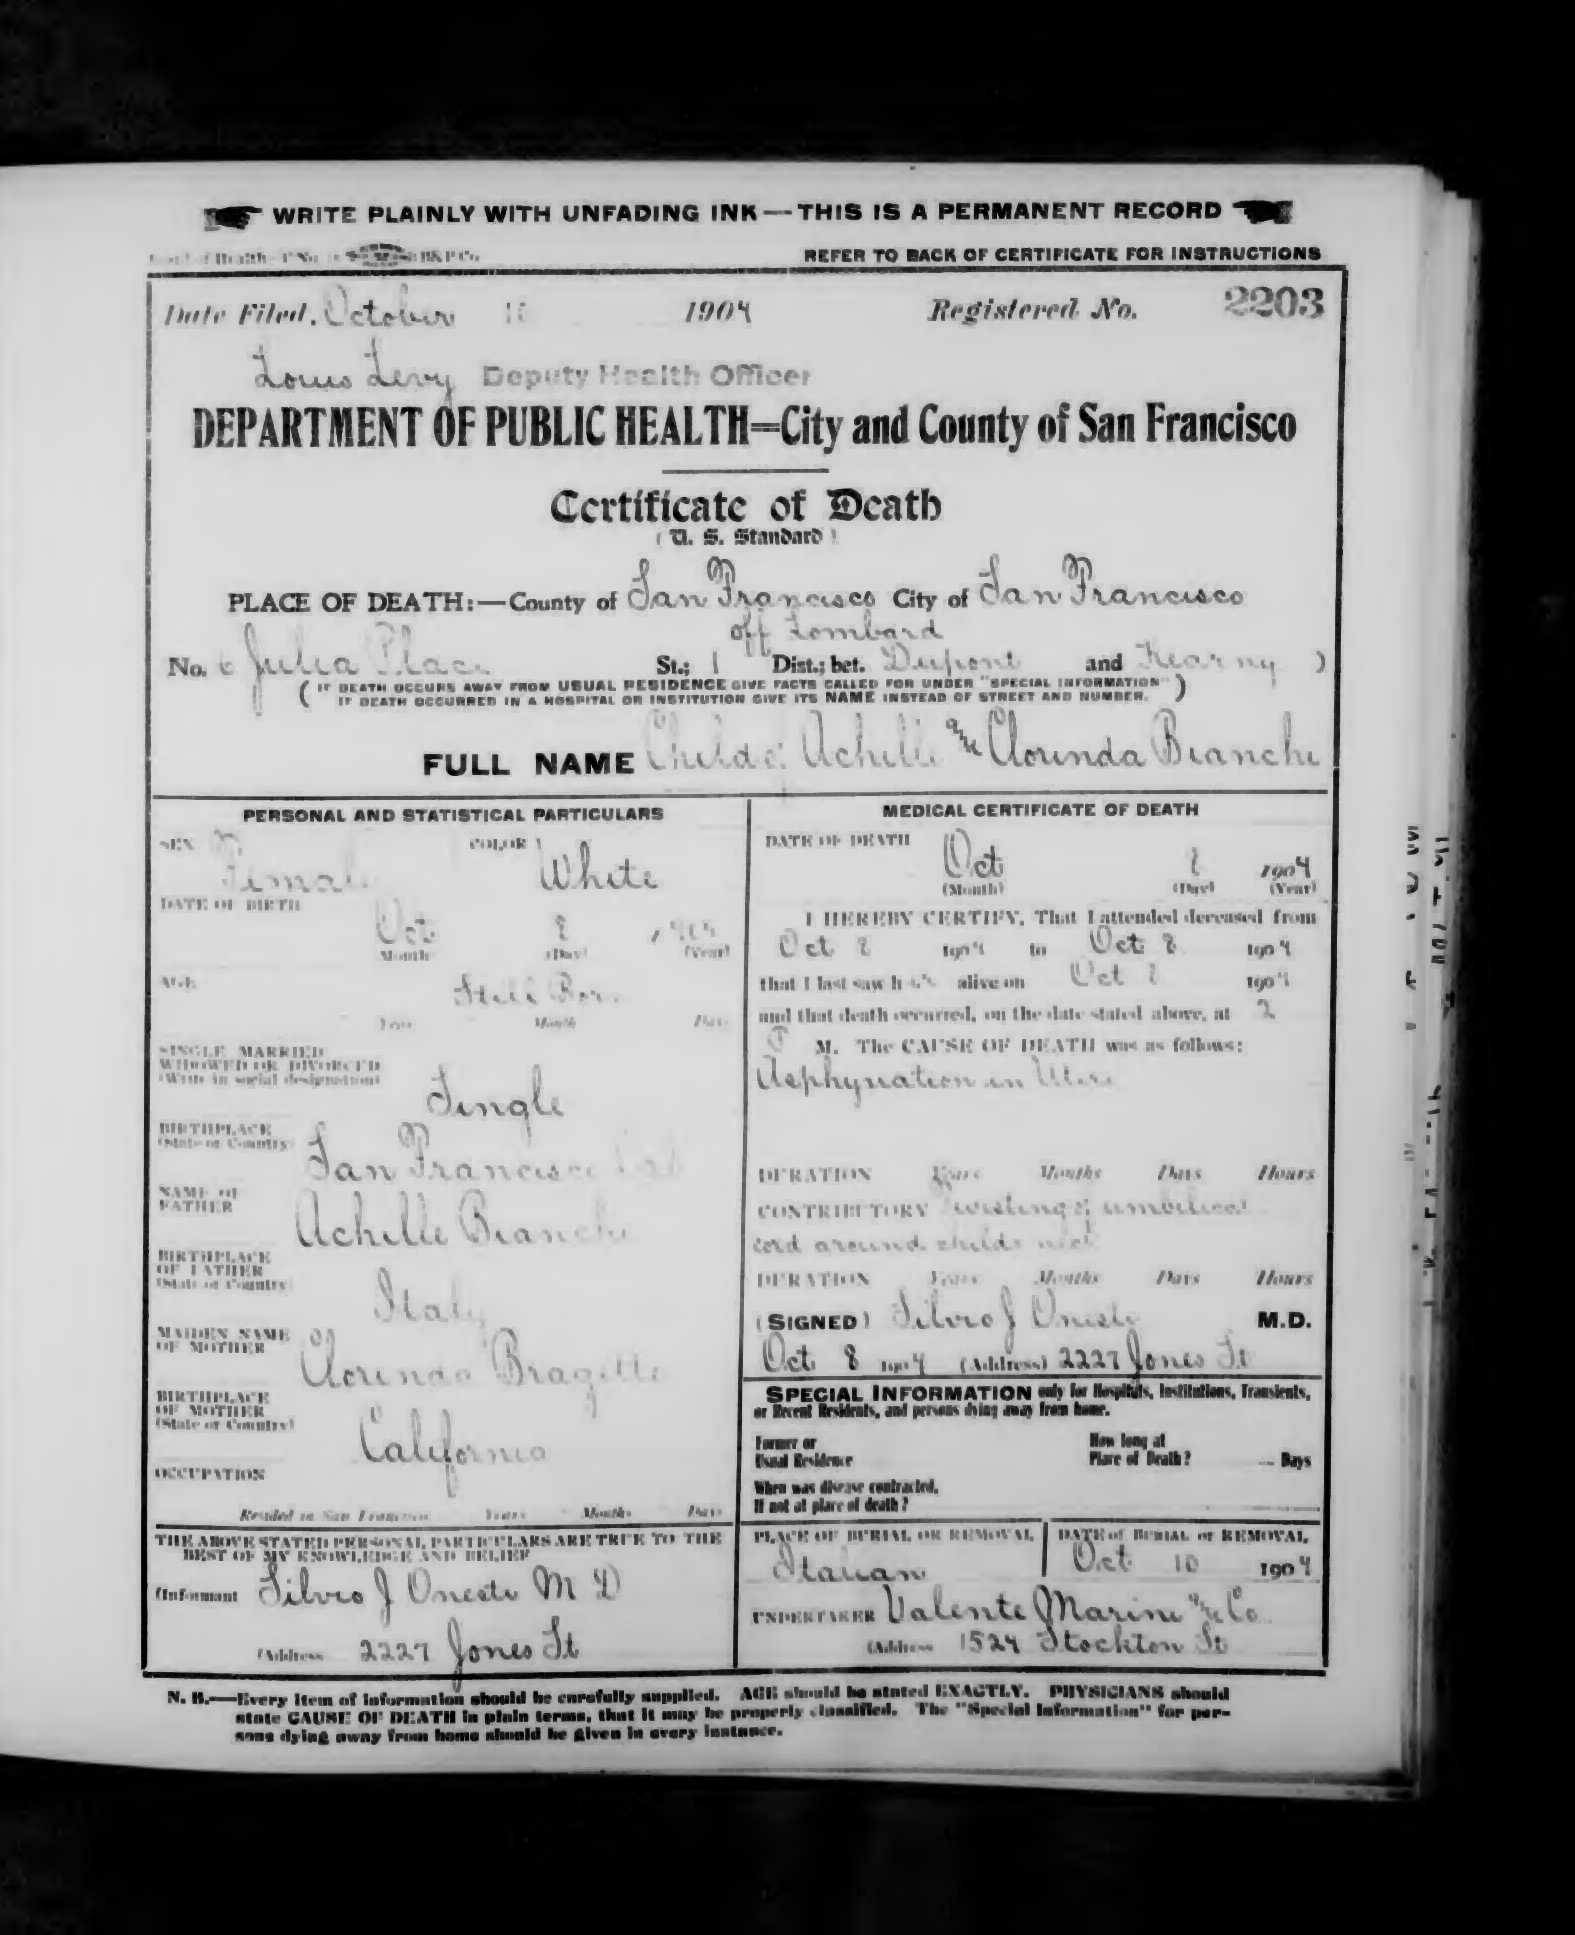 WRITE PLAINLY WITH UNFADING INK — THIS IS A PERMANENT RECORD
REFER TO BACK OF CERTIFICATE FOR INSTRUCTIONS
Date Filed, October 1904 Registered No. 2203
Louis Levy Deputy Health Officer
DEPARTMENT OF PUBLIC HEALTH=City and County of San Francisco
Certificate of Death
(U. S. Standard)
PLACE OF DEATH:—County of San Francisco City of San Francisco
off Lombard
No. 6 Julia Place St.; 1 Dist.; bet. Dupont and Kearny )
( IF DEATH OCCURS AWAY FROM USUAL RESIDENCE GIVE FACTS CALLED FOR UNDER "SPECIAL INFORMATION" )
IF DEATH OCCURRED IN A HOSPITAL OR INSTITUTION GIVE ITS NAME INSTEAD OF STREET AND NUMBER.
FULL NAME Child of Achille and Clorinda Bianchi
PERSONAL AND STATISTICAL PARTICULARS
SEX COLOR
Female White
DATE OF BIRTH
Oct 8 1904
Month (Day) (Year)
AGE Still Born
Years Month Days
SINGLE MARRIED
WIDOWED OR DIVORCED
(Write in social designation)
Single
BIRTHPLACE
(State or Country)
San Francisco Cal
NAME OF
FATHER
Achille Bianchi
BIRTHPLACE
OF FATHER
(State or Country)
Italy
MAIDEN NAME
OF MOTHER
Clorinda
BIRTHPLACE
OF MOTHER
(State or Country)
California
OCCUPATION
Resided in San Francisco Years Months Days
THE ABOVE STATED PERSONAL PARTICULARS ARE TRUE TO THE
BEST OF MY KNOWLEDGE AND BELIEF
(Informant Silvio J Onesti M D
(Address 2227 Jones St
MEDICAL CERTIFICATE OF DEATH
DATE OF DEATH
Oct 8 1904
(Month) (Day) (Year)
I HEREBY CERTIFY, That I attended deceased from
Oct 8 1904 to Oct 8 1904
that I last saw h alive on Oct 8 1904
and that death occurred, on the date stated above, at 2
P M. The CAUSE OF DEATH was as follows:
Asphyxiation in Utero
DURATION Years Months Days Hours
CONTRIBUTORY Twisting of umbilical
cord around childs neck
DURATION Years Months Days Hours
(SIGNED) Silvio J Onesti M.D.
Oct 8 1904 (Address) 2227 Jones St
SPECIAL INFORMATION only for Hospitals, Institutions, Transients,
or Recent Residents, and persons dying away from home.
Former or
Usual Residence
How long at
Place of Death? Days
When was disease contracted,
If not at place of death?
PLACE OF BURIAL OR REMOVAL
Italian
DATE of BURIAL or REMOVAL
Oct 10 1904
UNDERTAKER Valente Marini and Co
(Address 1524 Stockton St
N. B.—Every item of information should be carefully supplied. AGE should be stated EXACTLY. PHYSICIANS should
state CAUSE OF DEATH in plain terms, that it may be properly classified. The "Special Information" for per-
sons dying away from home should be given in every instance.